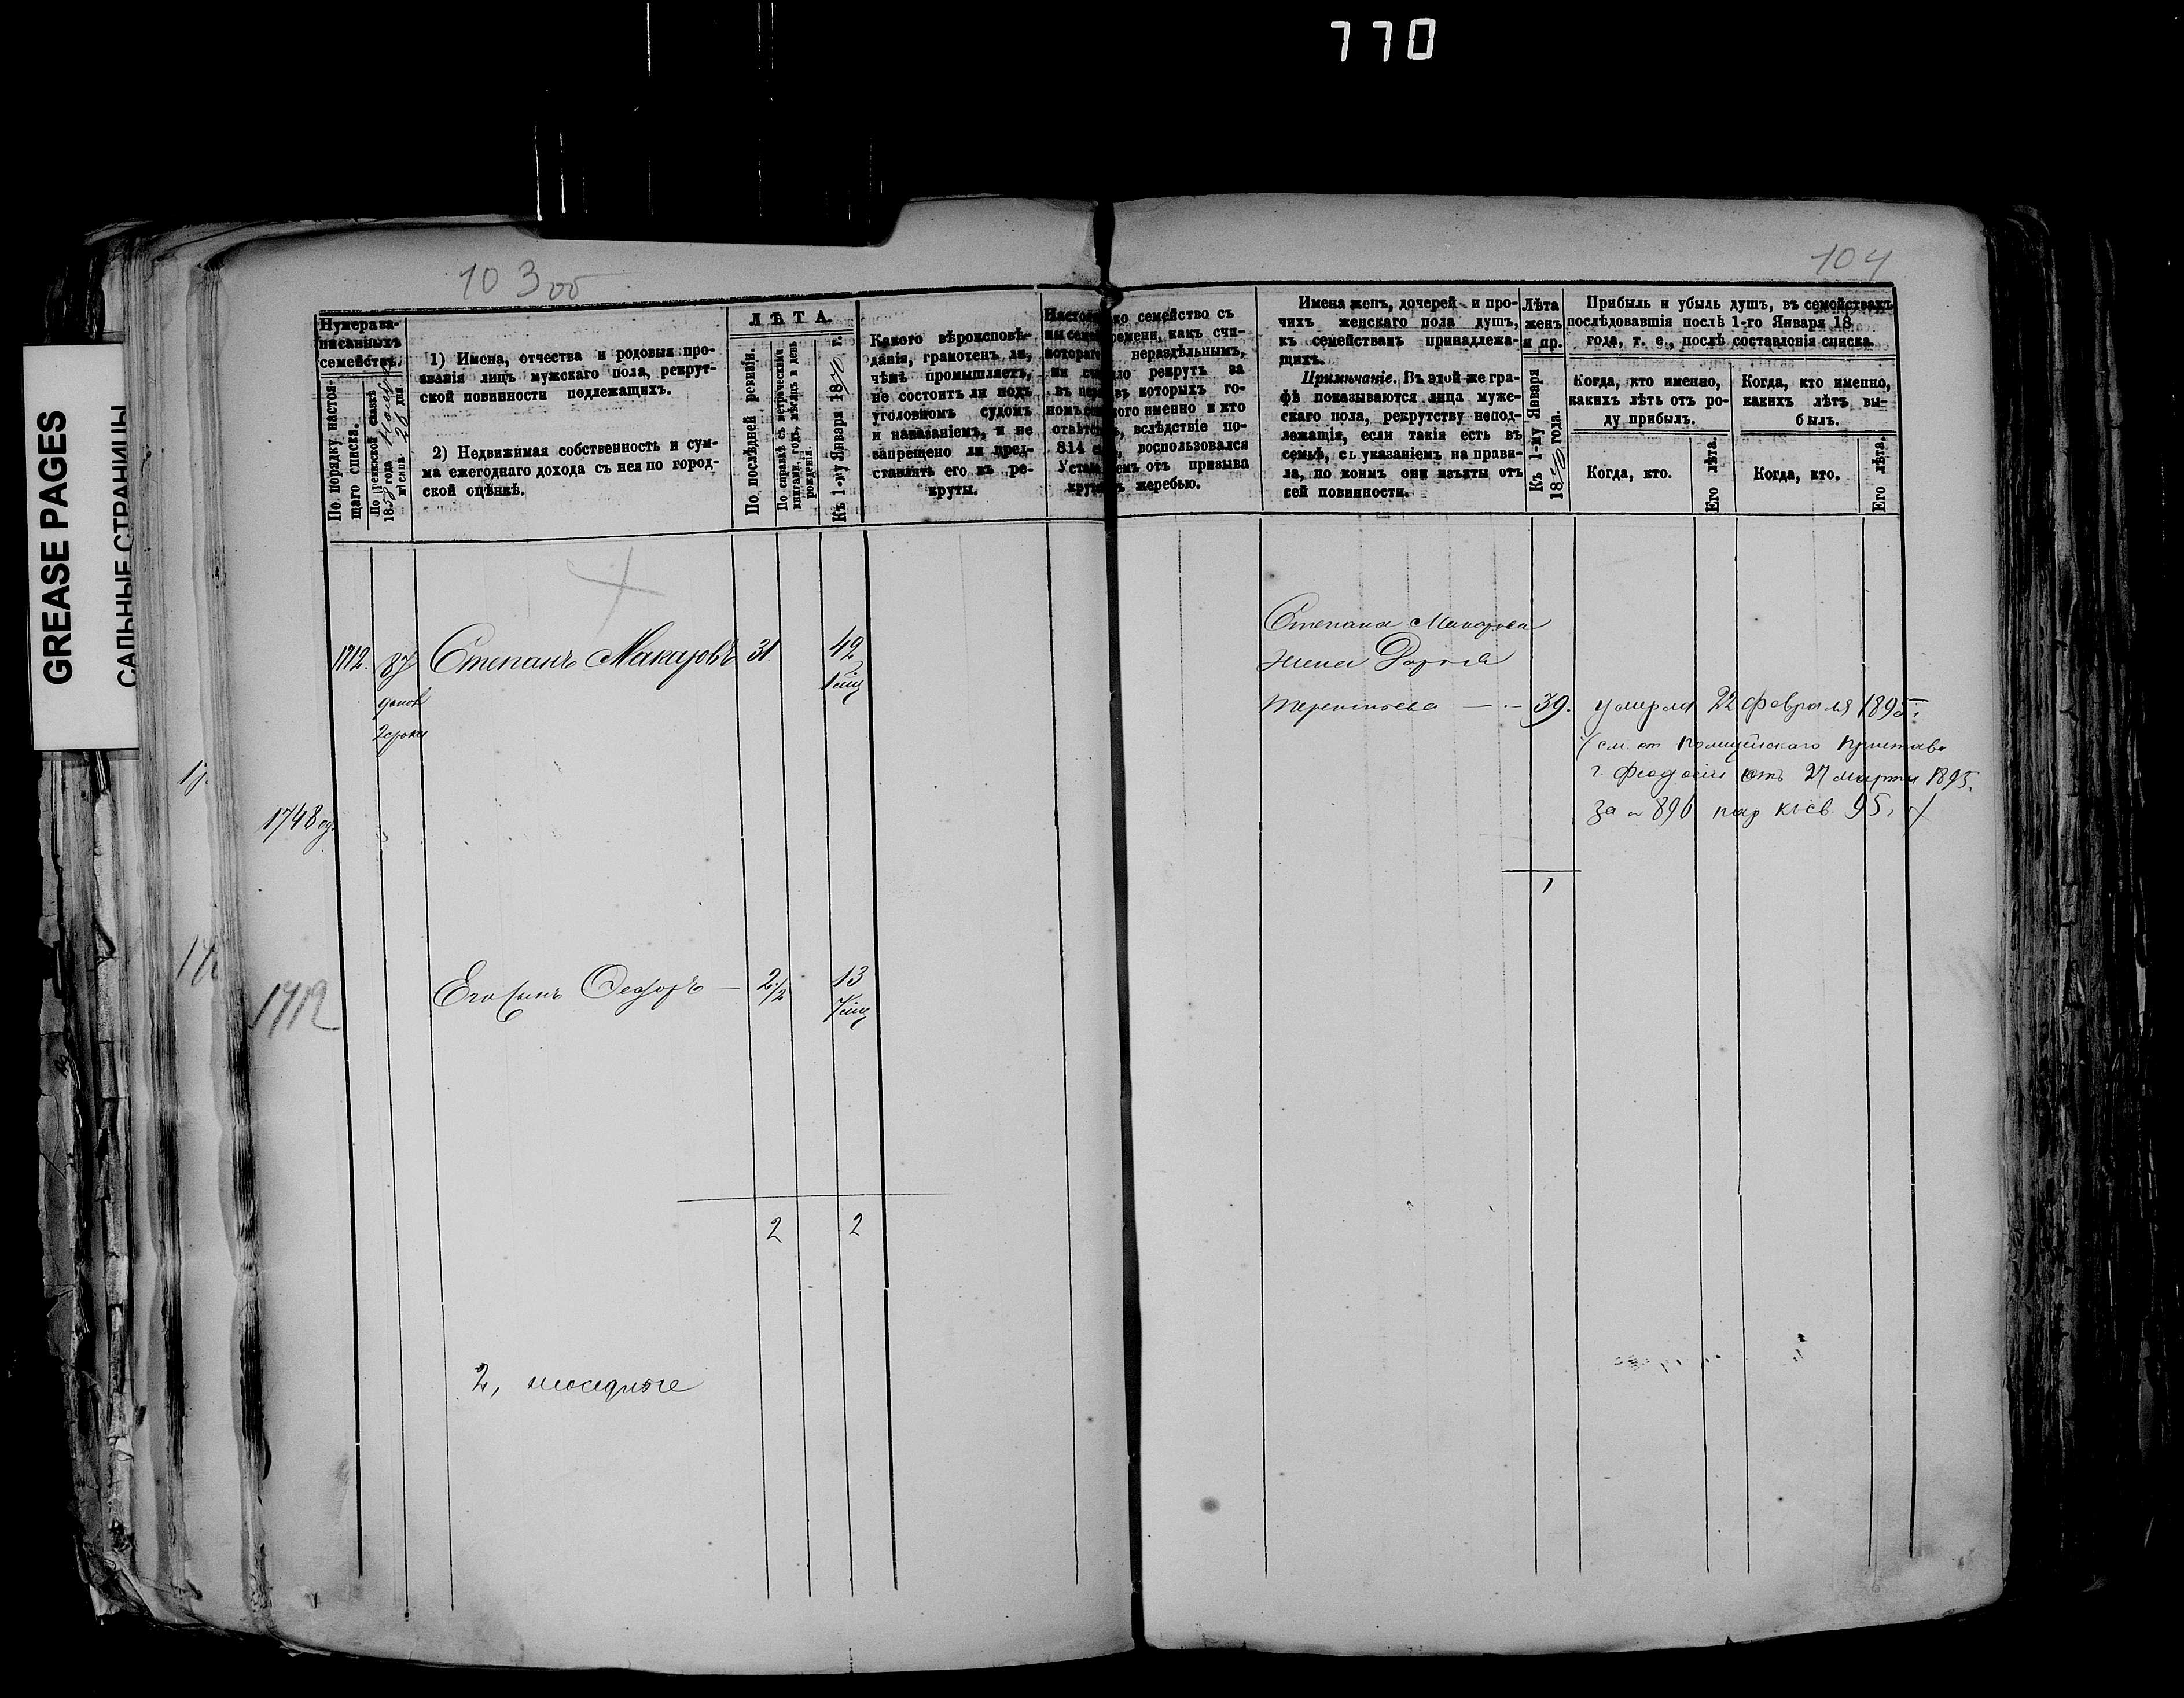 770
GREASE PAGES
САЛЬНЫЕ СТРАНИЦЫ
103об
104
Нумера за-
писанныхъ
семействъ.
По порядку настоя-
щаго списка.
По ревизской сказкѣ
185 года
мѣсяца 20 дня
1) Имена, отчества и родовыя про-
званія лицъ мужскаго пола, рекрут-
ской повинности подлежащихъ.
2) Недвижимая собственность и сум-
ма ежегоднаго дохода съ нея по город-
ской оцѣнкѣ.
ЛѢТА.
По послѣдней ревизіи.
По справкѣ съ метрическими
книгами, годъ, мѣсяцъ и день
рожденія.
Къ 1-му Января 1870 г.
Какого вѣроисповѣ-
данія, грамотенъ ли,
чѣмъ промышляетъ,
не состоитъ ли подъ
уголовномъ судомъ
и наказаніемъ, и не
запрещено ли пред-
ставлять его въ ре-
круты.
ко семейство съ
ремени, какъ счи-
нераздѣльнымъ,
ло рекрутъ за
въ которыхъ го-
кого именно и кто
вслѣдствіе по-
814 воспользовался
емъ отъ призыва
жеребью.
Имена женъ, дочерей и про-
чихъ женскаго пола душъ,
къ семействамъ принадлежа-
щихъ.
Примѣчаніе. Въ этой же гра-
фѣ показываются лица муже-
скаго пола, рекрутству непод-
лежащія, если такія есть въ
семьѣ, съ указаніемъ на прави-
ла, по коимъ они изъяты отъ
сей повинности.
Лѣта
женъ
и пр.
Къ 1-му Января
1870 года.
Прибыль и убыль душъ, въ семействахъ
послѣдовавшія послѣ 1-го Января 18
года, т. е., послѣ составленія списка.
Когда, кто именно,
какихъ лѣтъ отъ ро-
ду прибылъ.
Когда, кто.
Его лѣта.
Когда, кто именно,
какихъ лѣтъ вы-
былъ.
Когда, кто.
Его лѣта.
1712. 87 Степанъ Макаровъ 31. 42
Степана Макарова
жена Дарья
Терентьева — 39. умерла 22 февраля 1895 г.
(см. от Полицейскаго Пристава
г. Феодосіи отъ 27 марта 1895.
за № 890 95.
1748
1
1712
Его сынъ Федоръ — 2 1/2 13
2 2
2,